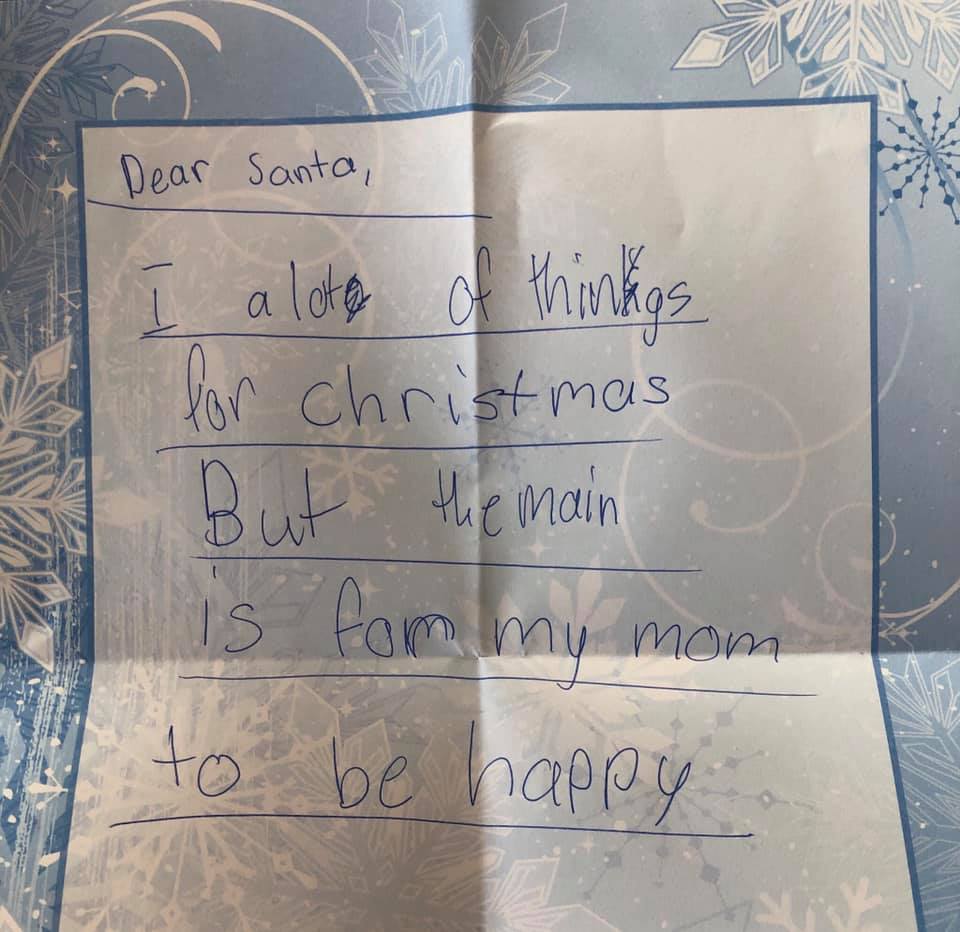 Dear Santa,
I a lot of things
for christmas
But the main
is form my mom
to be happy